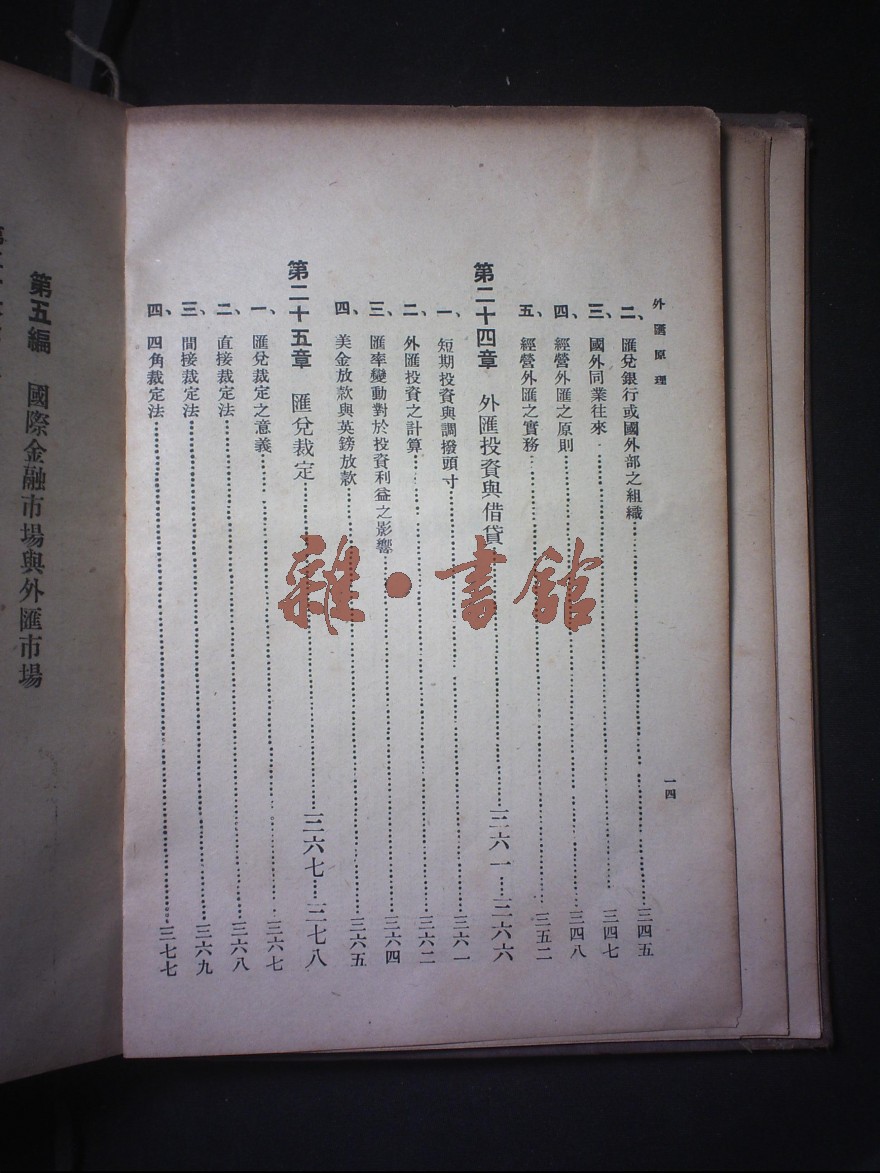 外匯原理
一四
二、匯兌銀行或國外部之組織……三四五
三、國外同業往來……三四七
四、經營外匯之原則……三四八
五、經營外匯之實務……三五二
第二十四章 外匯投資與借貸……三六一……三六六
一、短期投資與調撥頭寸……三六一
二、外匯投資之計算……三六二
三、匯率變動對於投資利益之影響……三六四
四、美金放款與英鎊放款……三六五
第二十五章 匯兌裁定……三六七……三七八
一、匯兌裁定之意義……三六七
二、直接裁定法……三六八
三、間接裁定法……三六九
四、四角裁定法……三七七
第五編 國際金融市場與外匯市場
雜·書館